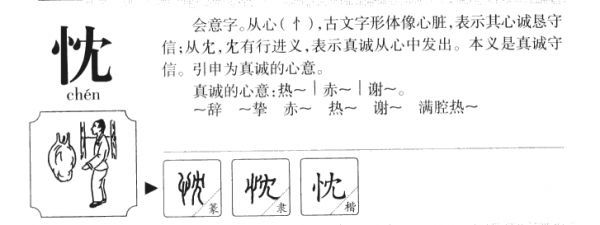 忱
chén
会意字。从心(忄),古文字形体像心脏,表示其心诚恳守
信;从冘,冘有行进义,表示真诚从心中发出。本义是真诚守
信。引申为真诚的心意。
真诚的心意:热～｜赤～｜谢～。
～辞 ～挚 赤～ 热～ 谢～ 满腔热～
忱 篆
忱 隶
忱 楷